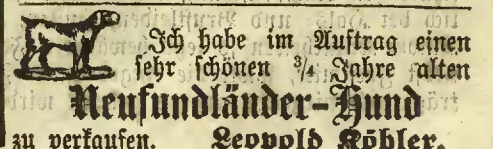 Ich habe im Auftrag einen
sehr schönen ¾ Jahre alten
Neufundländer-Hund
zu verkaufen. Leopold Köhler.